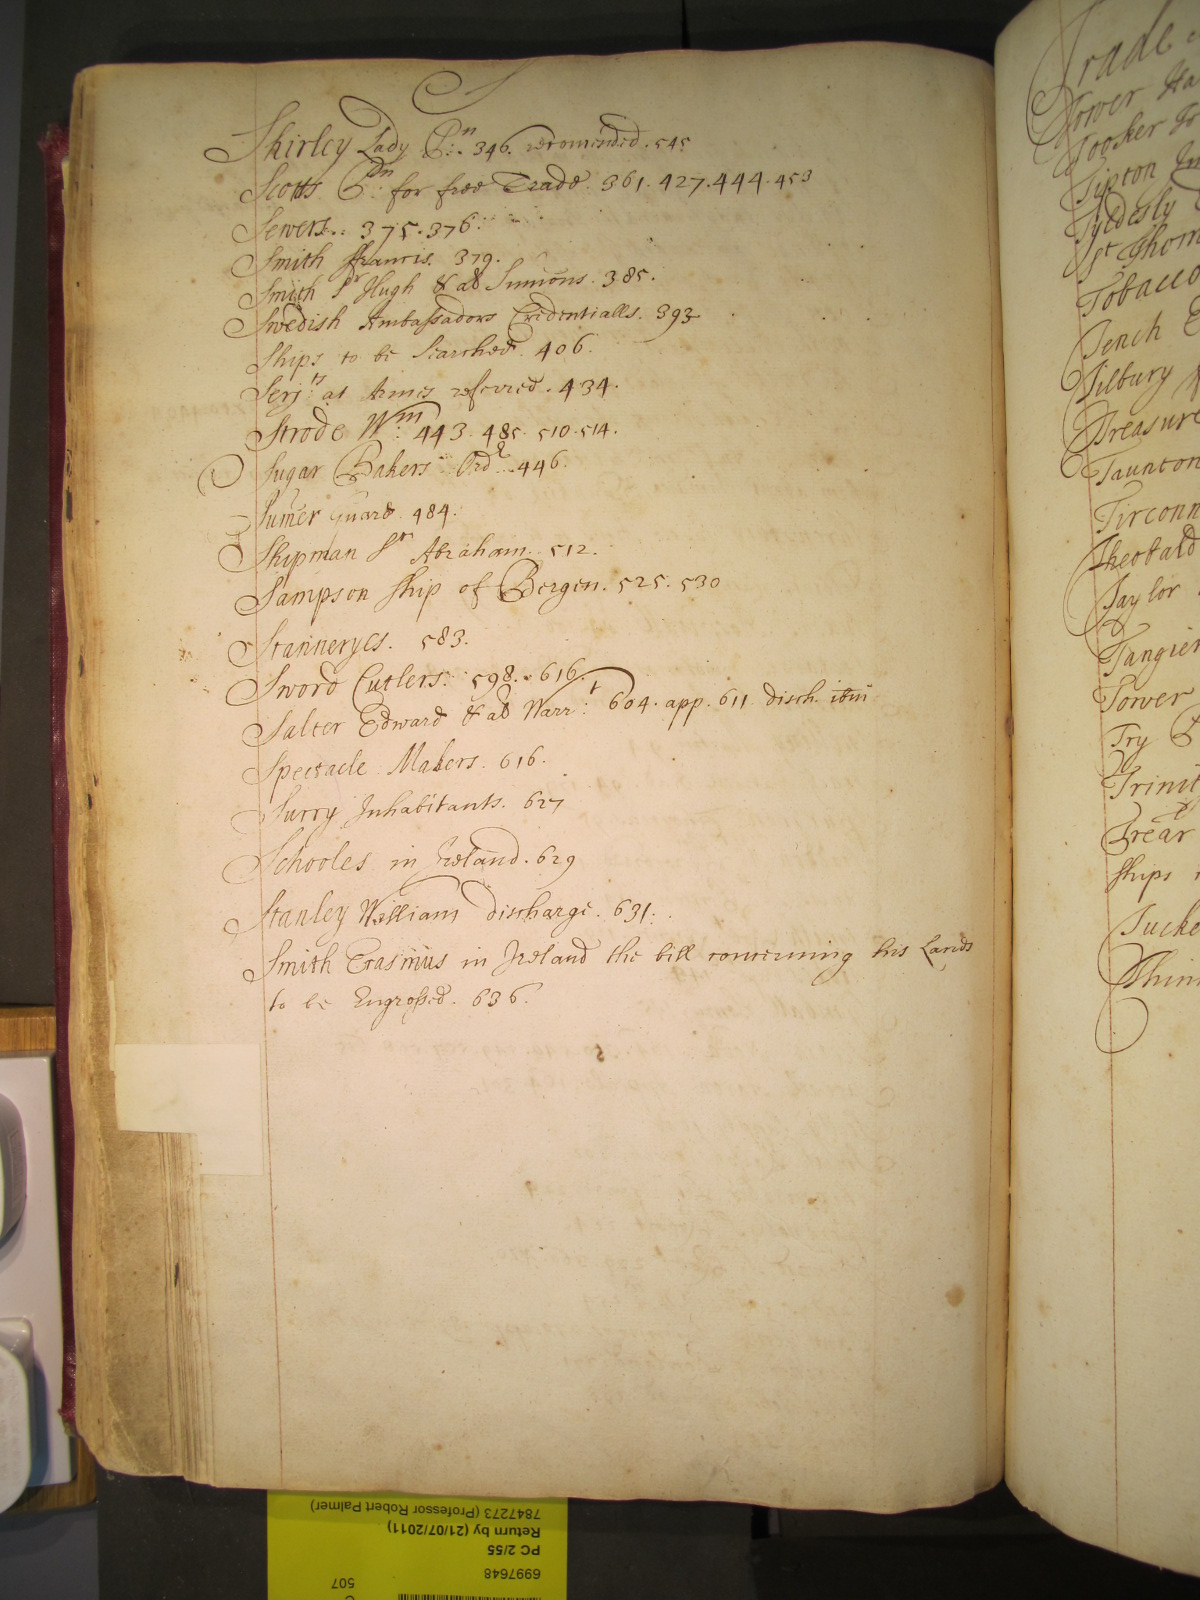 S
Shirley Lady P:n 346. recomended. 545
Scotts P:dn for free Trade. 361. 427. 444. 453
Sewers.. 375. 376.
Smith ffrancis. 379.
Smith Sr Hugh & al Sumons. 385.
Swedish Ambassadors Credentialls. 393
Ships to be Searched. 406.
Serj:ts at Armes referred. 434.
Strode Wm: 443. 485. 510. 514.
Sugar Bakers Ordr 446.
Sumer guard. 484.
Shipman Sr Abraham. 512.
Sampson ship of Bergen. 525. 530
Stanneryes. 583.
Sword Cutlers: 598. 616.
Salter Edward & al Warr:t 604. app. 611 disch. ibm
Spectacle Makers. 616.
Surry Inhabitants. 627
Schooles in Ireland. 629
Stanley William discharge. 631.
Smith Erasmus in Ireland the bill concerning his Lands
to be Engrossed. 636.
Trade
Tower Ha
Tooker
Tipton
Tyldesly
St Thom
Tobacco
Tench E
Tilbury
Treasure
Taunton
Tirconn
Theobald
Taylor
Tangier
Tower
Try
Trinit
Trear
ships
Tucke
Thinn
7847273 (Professor Robert Palmer)
Return by (21/07/2011)
PC 2/55
6997648
507